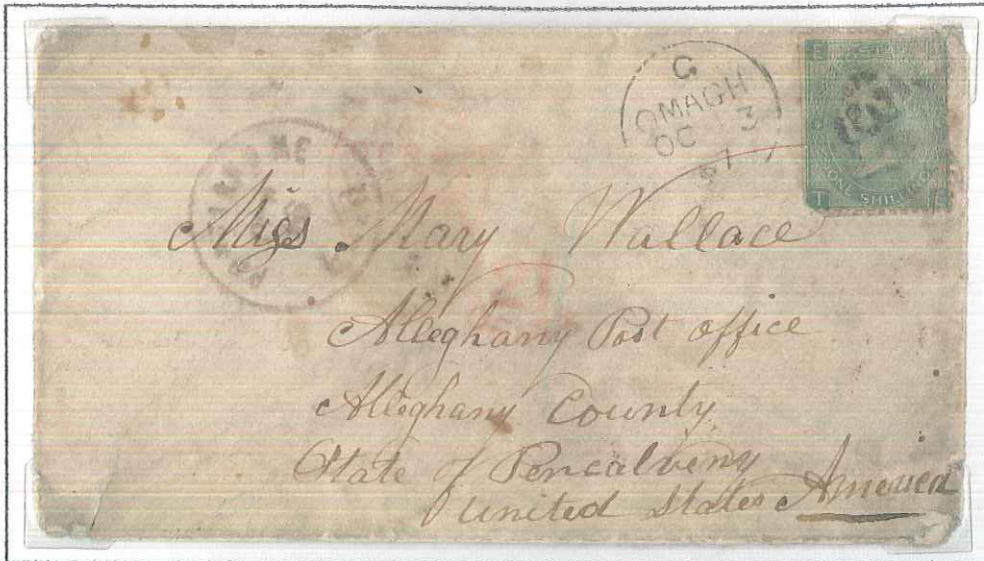 C
OMAGH
OC 3
67
E
ONE SHILLING
I
PORTLAND ME
Miss Mary Wallace
Alleghany Post office
Alleghany County
State of Pencalveny
United States America